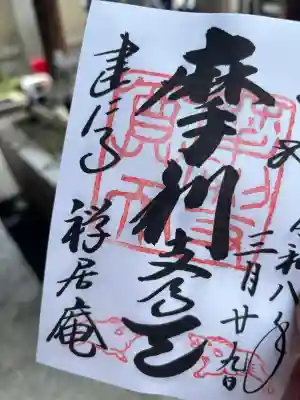 令和八年
三月廿九日
摩利支天
建仁寺
禅居庵